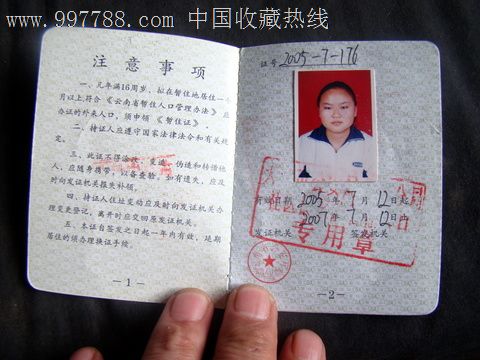 www.997788.com 中国收藏热线
注意事项
一、凡年满16周岁、拟在暂住地居住一
月以上符合《云南省暂住人口管理办法》应
办证的外来人口，须申领《暂住证》。
二、持证人应遵守国家法律法令和有关规
定。
三、此证不得涂改、变造、伪造和转借他
人，应随身携带，以备查验。如有遗失，应及
时向发证机关报失补领。
四、持证人住址变动应及时向发证机关办
理变更登记，离开时应交回原发证机关。
五、本证自签发之日起一年内有效，延期
居住的须办理换证手续。
-1-
证号 2005-7-176
有效日期 2005年7月12日起
2007年7月12日止
发证机关 签发机关
专用章
-2-